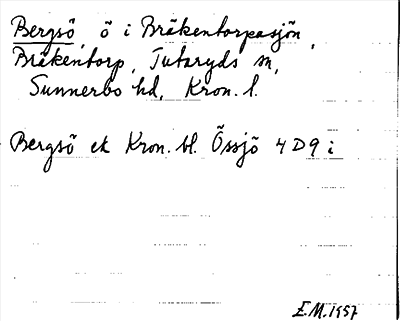 Bergsö, ö i Bräkentorpasjön,
Bräkentorp, Tutaryds sn,
Sunnerbo hd, Kron. l.
Bergsö ek Kron. bl. Össjö 4D9i
E.M. 1957